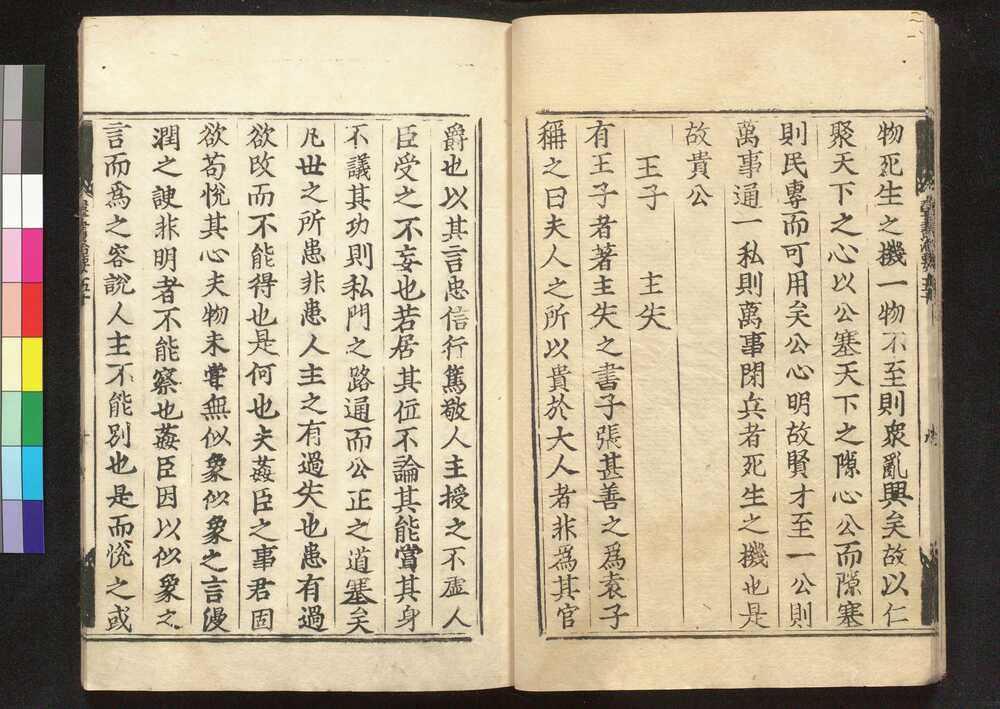 物死生之機一物不至則衆亂興矣故以仁
聚天下之心以公塞天下之隙心公而隙塞
則民專而可用矣公心明故賢才至一公則
萬事通一私則萬事閉兵者死生之機也是
故貴公
王子 主失
有王子者著主失之書子張甚善之爲袁子
稱之曰夫人之所以貴於大人者非爲其官
爵也以其言忠信行篤敬人主授之不虛人
臣受之不妄也若居其位不論其能賞其身
不議其功則私門之路通而公正之道塞矣
凡世之所患非患人主之有過失也患有過
欲改而不能得也是何也夫姦臣之事君固
欲苟悅其心夫物未嘗無似象似象之言漫
潤之諛非明者不能察也姦臣因以似象之
言而爲之容說人主不能別也是而悅之或